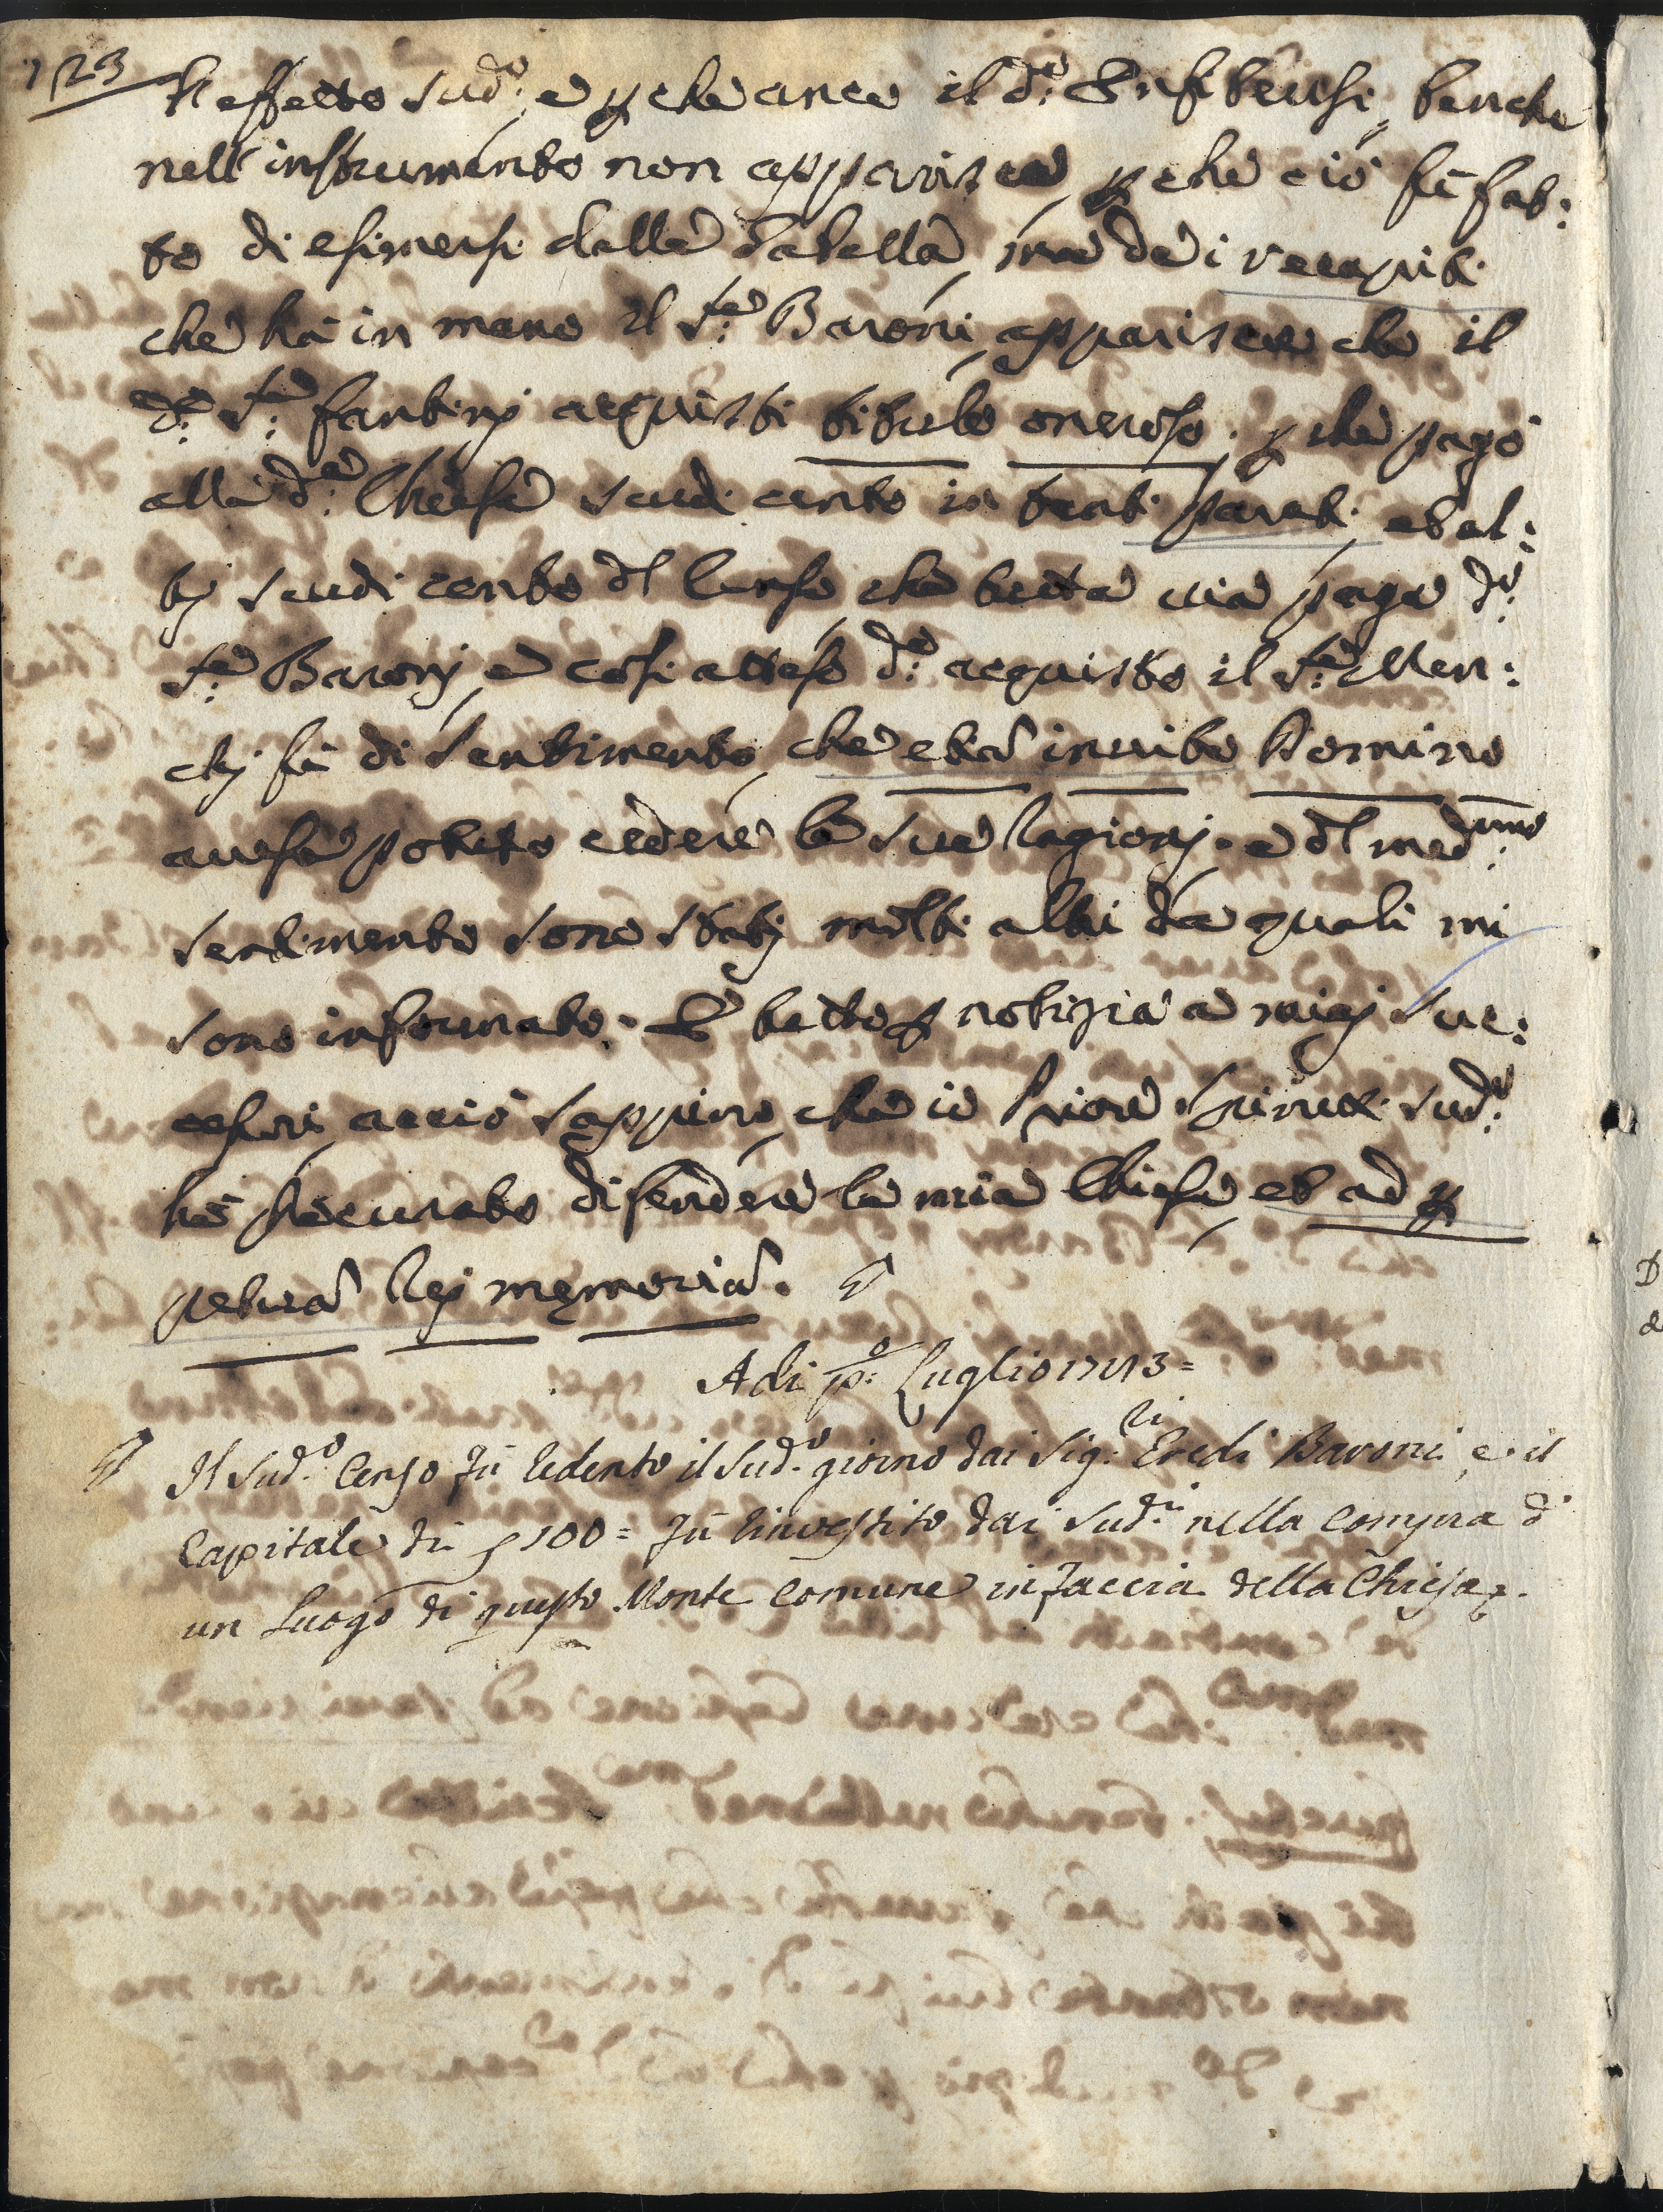 1723
l'effetto sud.o e p che anco il d.o Enfiteusi, benche
nell'instrumento non apparisca, p che ciò fù fat:
to di esimersi dalla Gabella, ma da i recapiti
che hà in mano il S.re Baroni, apparisce che il
d.o S.re fantinj acquisti titulo oneroso. p che pagò
alla d.a Chiesa scudi cento in tanti parati, et al:
tj scudi cento del Censo che tutta via paga d.o
S.re Baronj, e così atteso d.o acquisto il S.re Men:
chj fù di sentimento, che etiā invito Domino
avesse potuto cedere le sue ragionj. e del med.imo
sentimento sono statj molti altri da quali mi
sono informato. E tutto p notizia a miej suc:
cessori acciò sappino, che io Priore sud.o
hò procurato difendere la mia Chiesa, et ad p
petuā Rej memoriā.
Adi p.o Luglio 1773=
Il Sud.o Censo fù redento il Sud.o giorno dai Sig.ri Eredi Baroni, e il
Capitale di 100= fù rinvestito dai Sud.i nella compra di
un Luogo di questo Monte Comune in faccia della Chiesa.